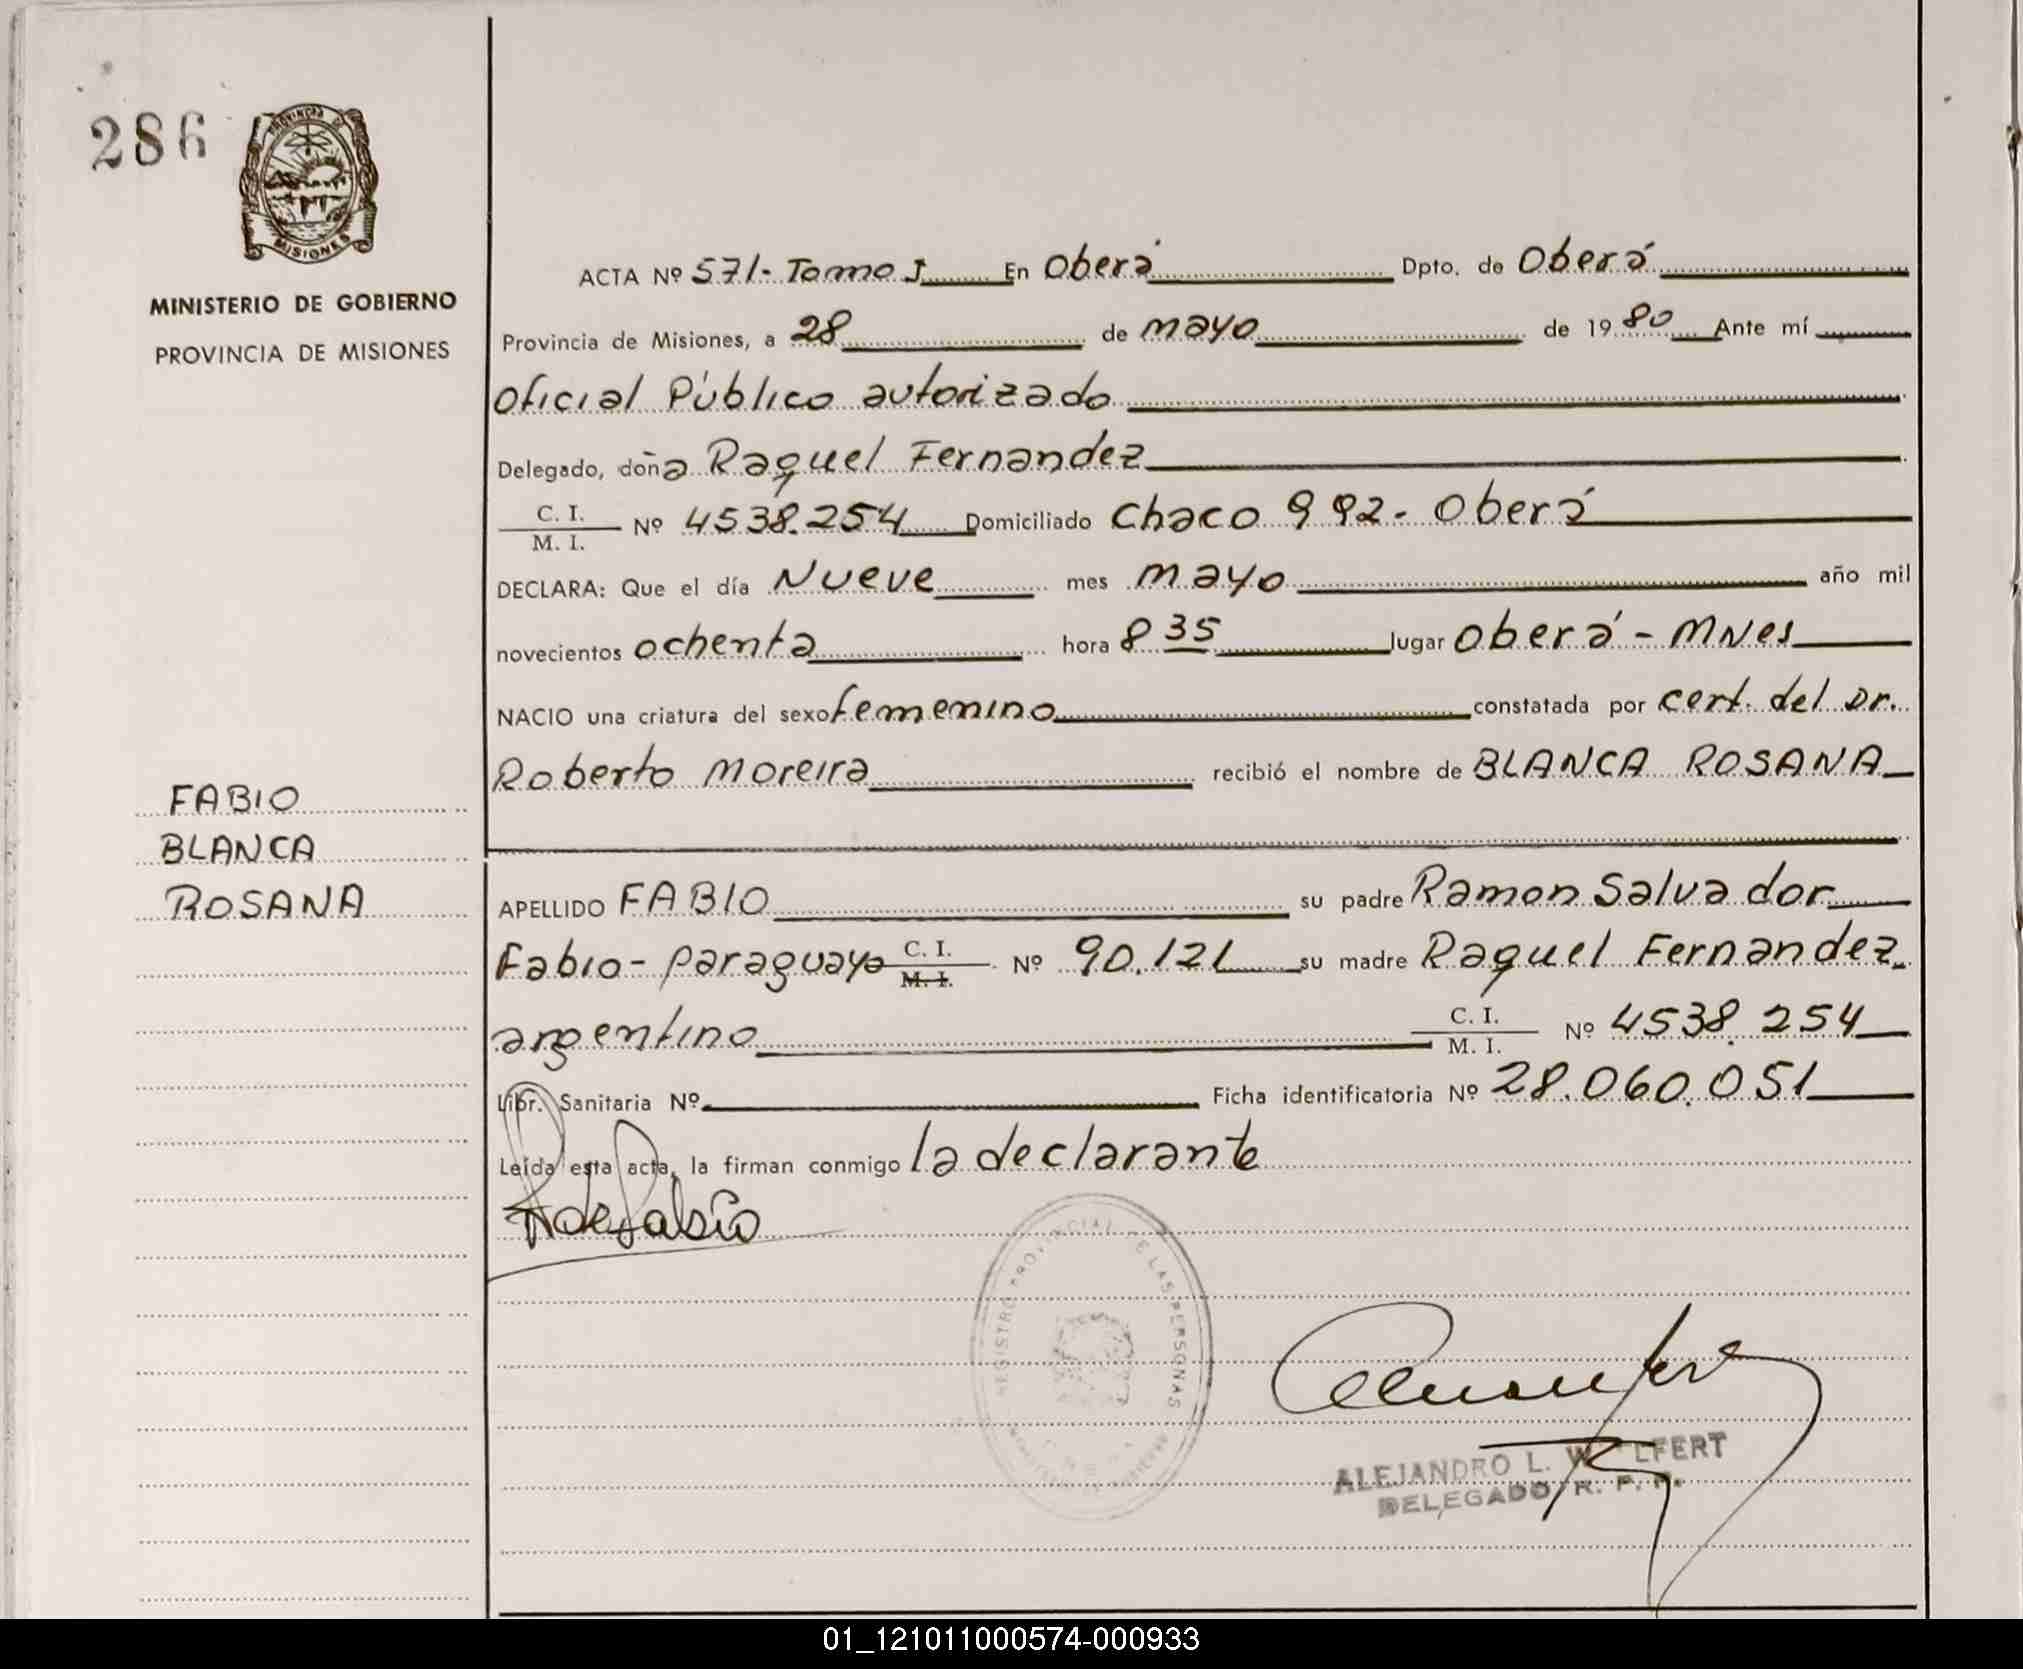 286
PROVINCIA DE
MISIONES
MINISTERIO DE GOBIERNO
PROVINCIA DE MISIONES
FABIO
BLANCA
ROSANA
ACTA Nº 571- Tomo I En Oberá Dpto. de Oberá
Provincia de Misiones, a 28 de mayo de 1980 Ante mí
Oficial Público autorizado
Delegado, doña Raquel Fernandez
C. I.
M. I. Nº 4538.254 Domiciliado Chaco 992- Oberá
DECLARA: Que el día Nueve mes mayo año mil
novecientos ochenta hora 8 35 lugar Oberá - MNes
NACIO una criatura del sexo femenino constatada por cert. del Dr.
Roberto Moreira recibió el nombre de BLANCA ROSANA
APELLIDO FABIO su padre Ramon Salvador
Fabio - paraguayo C. I. M. I. Nº 90.121 su madre Raquel Fernandez
argentino C. I. M. I. Nº 4538.254
Libr. Sanitaria Nº Ficha identificatoria Nº 28.060.051
Leída esta acta, la firman conmigo la declarante
R de Fabio
REGISTRO PROVINCIAL DE LAS PERSONAS
ALEJANDRO L. W LFERT
DELEGADO R. P. P.
01_121011000574-000933